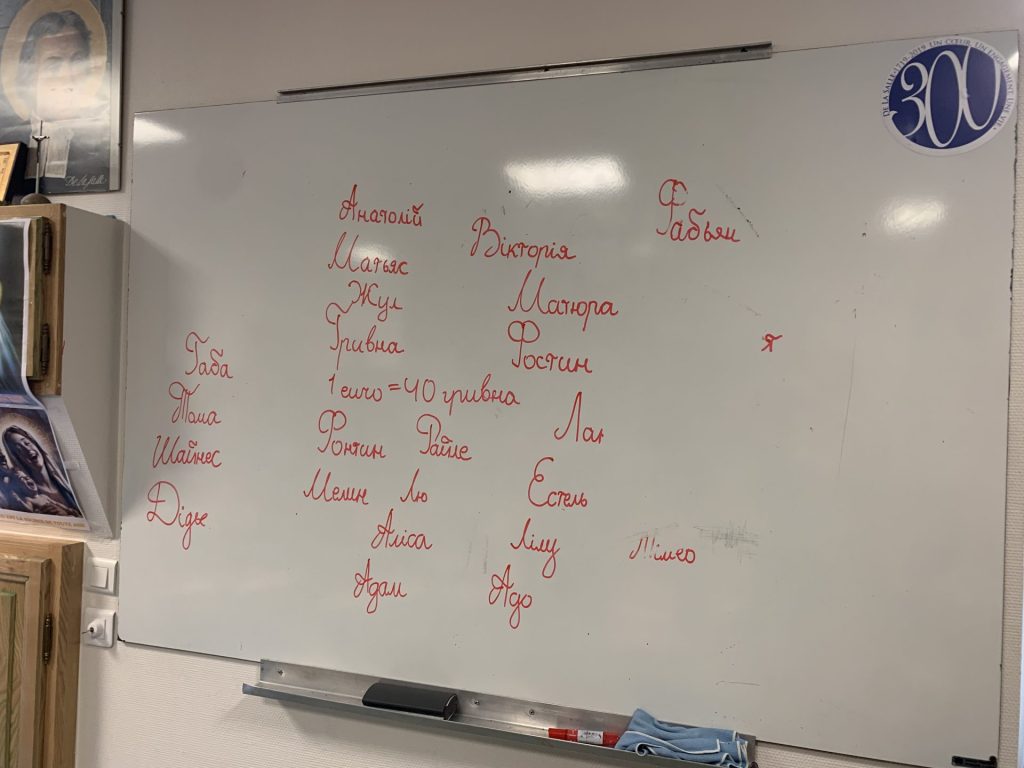 DE LA SALLE 1719-2019. UN CŒUR. UN ENGAGEMENT. UNE VIE.
300
De la Salle
Анатолій
Фабьян
Вікторія
Матьяс
Жул
Матюра
Гривна
Фостин
я
Габа
1 euro = 40 гривна
Тома
Лан
Фонтин
Шайнес
Мелин Лю
Естель
Дідье
Аліса
Лілу
Мілео
Адам
Адо